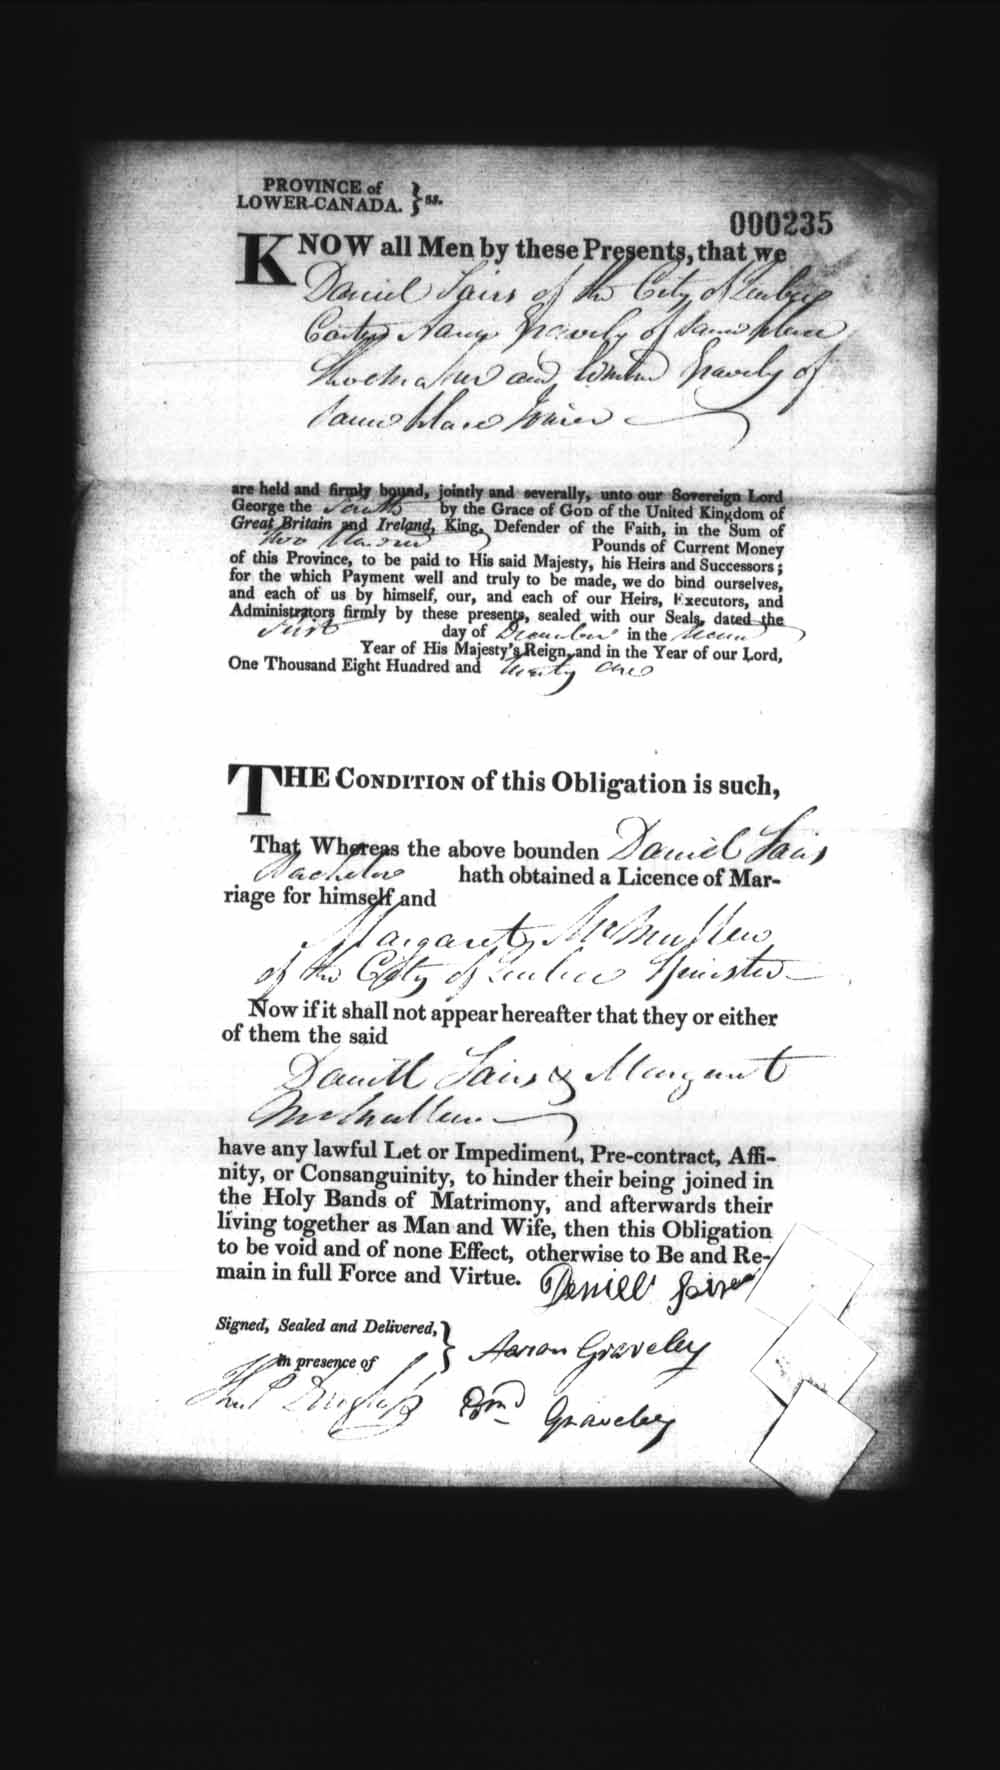 PROVINCE of
LOWER-CANADA. } ss.
000235
KNOW all Men by these Presents, that we
Daniel Sairs of the City of Quebec
Carter Aaron Gravely of same place
Shoemaker and Edmund Gravely of
same place Joiner
are held and firmly bound, jointly and severally, unto our Sovereign Lord
George the Fourth by the Grace of GOD of the United Kingdom of
Great Britain and Ireland, King, Defender of the Faith, in the Sum of
Two Pounds of Current Money
of this Province, to be paid to His said Majesty, his Heirs and Successors;
for the which Payment well and truly to be made, we do bind ourselves,
and each of us by himself, our, and each of our Heirs, Executors, and
Administrators firmly by these presents, sealed with our Seals, dated the
first day of December in the Second
Year of His Majesty's Reign, and in the Year of our Lord,
One Thousand Eight Hundred and twenty one
THE CONDITION of this Obligation is such,
That Whereas the above bounden Daniel Sairs
Bachelor hath obtained a Licence of Mar-
riage for himself and
Margaret McMullen
of the City of Quebec Spinster
Now if it shall not appear hereafter that they or either
of them the said
Daniel Sairs & Margaret
McMullen
have any lawful Let or Impediment, Pre-contract, Affi-
nity, or Consanguinity, to hinder their being joined in
the Holy Bands of Matrimony, and afterwards their
living together as Man and Wife, then this Obligation
to be void and of none Effect, otherwise to Be and Re-
main in full Force and Virtue.
Daniel
Signed, Sealed and Delivered, }
in presence of
Aaron Graveley
Edmd Graveley